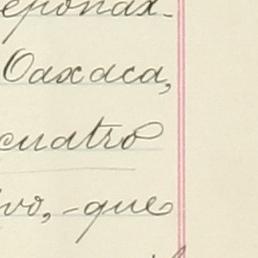 eponax-
Oaxaca,
cuatro
ivo, - que